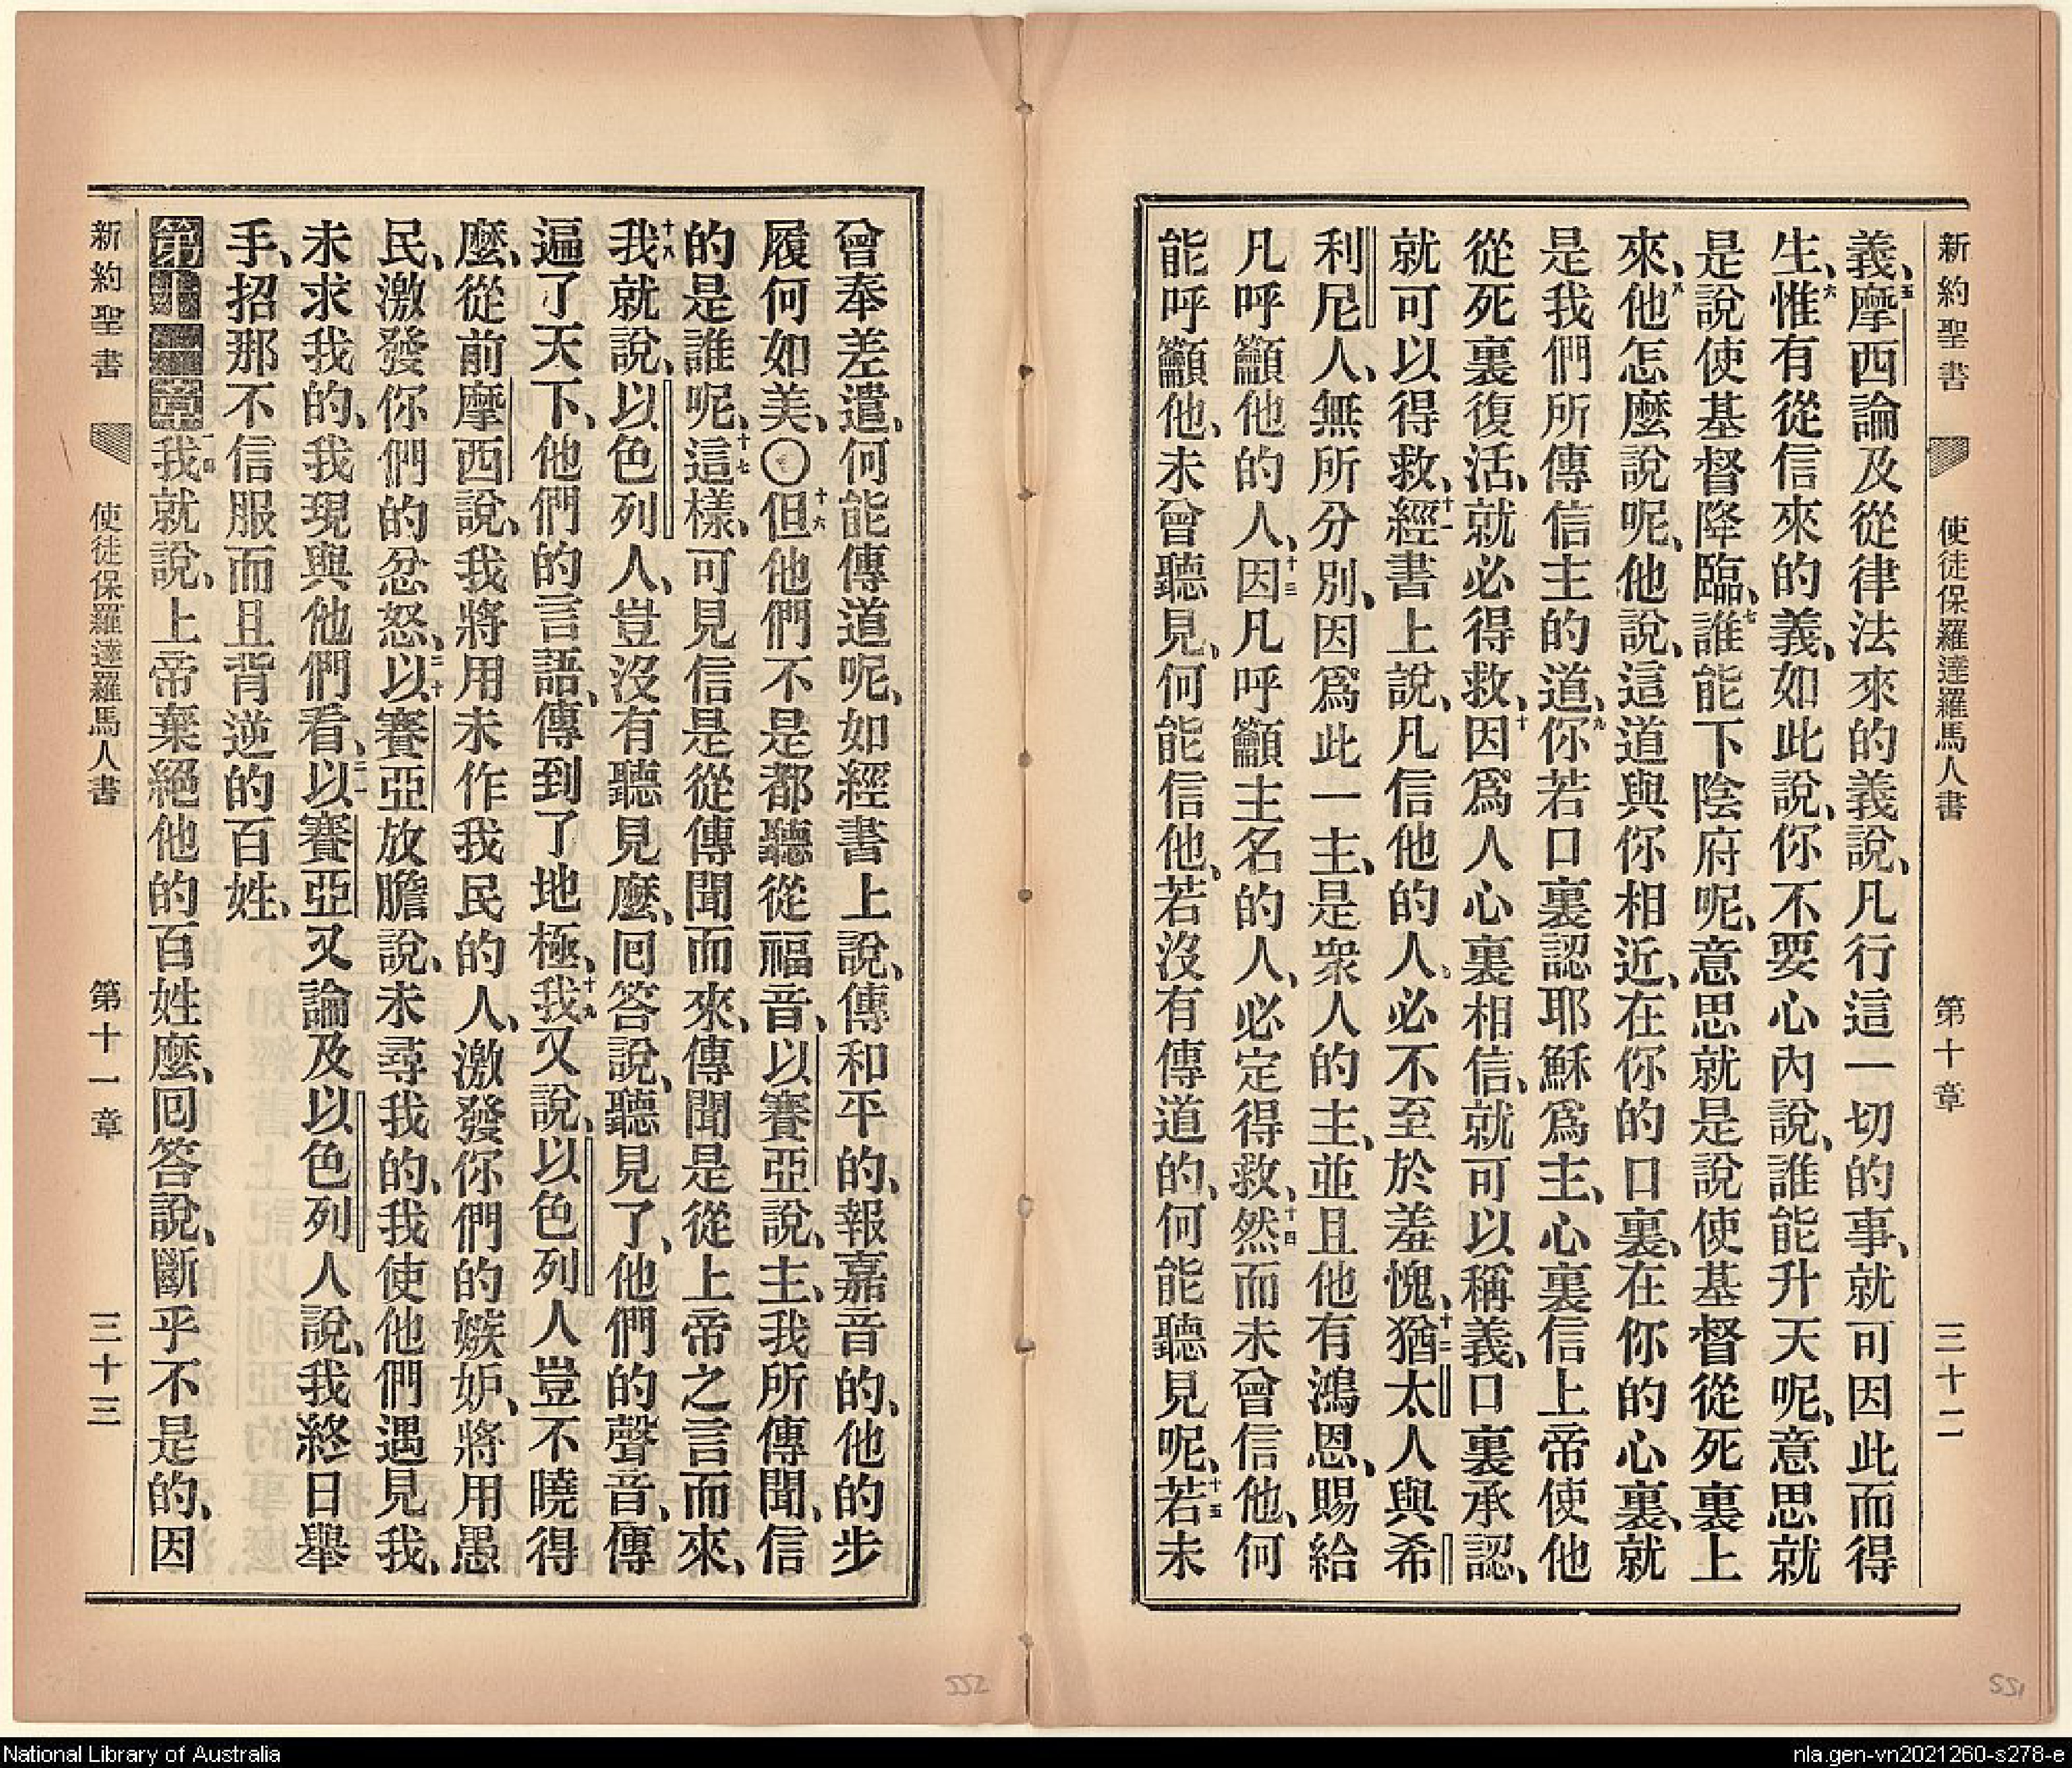 新約聖書 使徒保羅達羅馬人書 第十章 三十二
義、五摩西論及從律法來的義說、凡行這一切的事、就可因此而得
生、六惟有從信來的義、如此說、你不要心內說、誰能升天呢、意思就
是說使基督降臨、七誰能下陰府呢、意思就是說使基督從死裏上
來、八他怎麽說呢、他說、這道與你相近、在你的口裏、在你的心裏、就
是我們所傳信主的道、九你若口裏認耶穌爲主、心裏信上帝使他
從死裏復活、就必得救、十因爲人心裏相信、就可以稱義、口裏承認、
就可以得救、十一經書上說、凡信他的人、必不至於羞愧、十二猶太人與希
利尼人、無所分別、因爲此一主、是衆人的主、並且他有鴻恩、賜給
凡呼籲他的人、十三因凡呼籲主名的人、必定得救、十四然而未曾信他、何
能呼籲他、未曾聽見、何能信他、若沒有傳道的、何能聽見呢、十五若未
曾奉差遣、何能傳道呢、如經書上說、傳和平的、報嘉音的、他的步
履何如美、〇十六但他們不是都聽從福音、以賽亞說、主、我所傳聞、信
的是誰呢、十七這樣、可見信是從傳聞而來、傳聞是從上帝之言而來、
十八我就說、以色列人、豈沒有聽見麽、囘答說、聽見了、他們的聲音、傳
遍了天下、他們的言語、傳到了地極、十九我又說、以色列人豈不曉得
麽、從前摩西說、我將用未作我民的人、激發你們的嫉妒、將用愚
民、激發你們的忿怒、二十以賽亞放膽說、未尋我的、我使他們遇見我、
未求我的、我現與他們看、二一以賽亞又論及以色列人說、我終日舉
手、招那不信服而且背逆的百姓、
第十一章一我就說、上帝棄絕他的百姓麽、囘答說、斷乎不是的、因
新約聖書 使徒保羅達羅馬人書 第十一章 三十三
551
552
National Library of Australia
nla.gen-vn2021260-s278-e